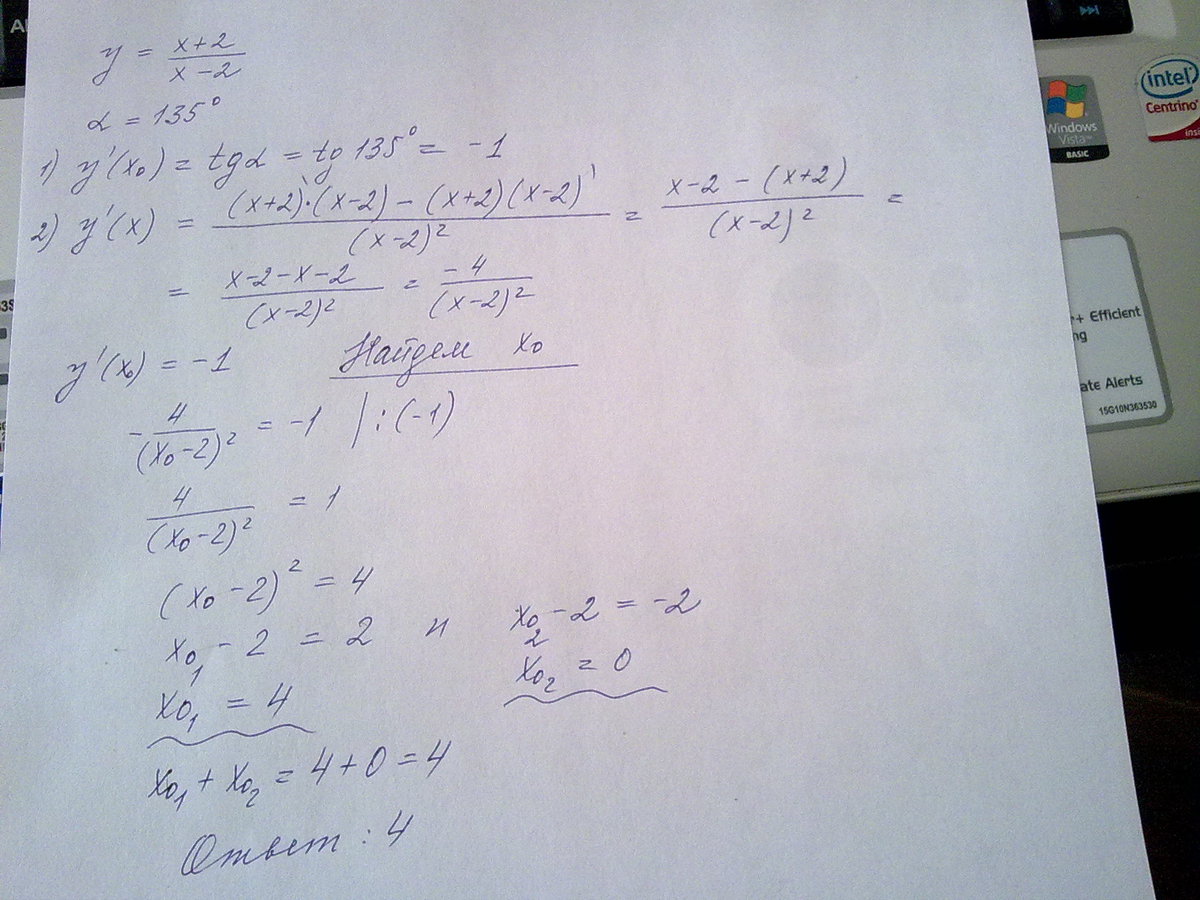 y = (x+2)/(x-2)
α = 135°
1) y'(x₀) = tgα = tg 135° = -1
2) y'(x) = ((x+2)'·(x-2) - (x+2)(x-2)')/(x-2)² = (x-2-(x+2))/(x-2)² =
= (x-2-x-2)/(x-2)² = -4/(x-2)²
y'(x₀) = -1 Найдем x₀
-4/(x₀-2)² = -1 | :(-1)
4/(x₀-2)² = 1
(x₀-2)² = 4
x₀₁ - 2 = 2 и x₀₂ - 2 = -2
x₀₁ = 4 x₀₂ = 0
x₀₁ + x₀₂ = 4+0 = 4
Ответ: 4
intel
Centrino
insi
Windows
Vista
BASIC
r+ Efficient
ng
ate Alerts
15G10N363530